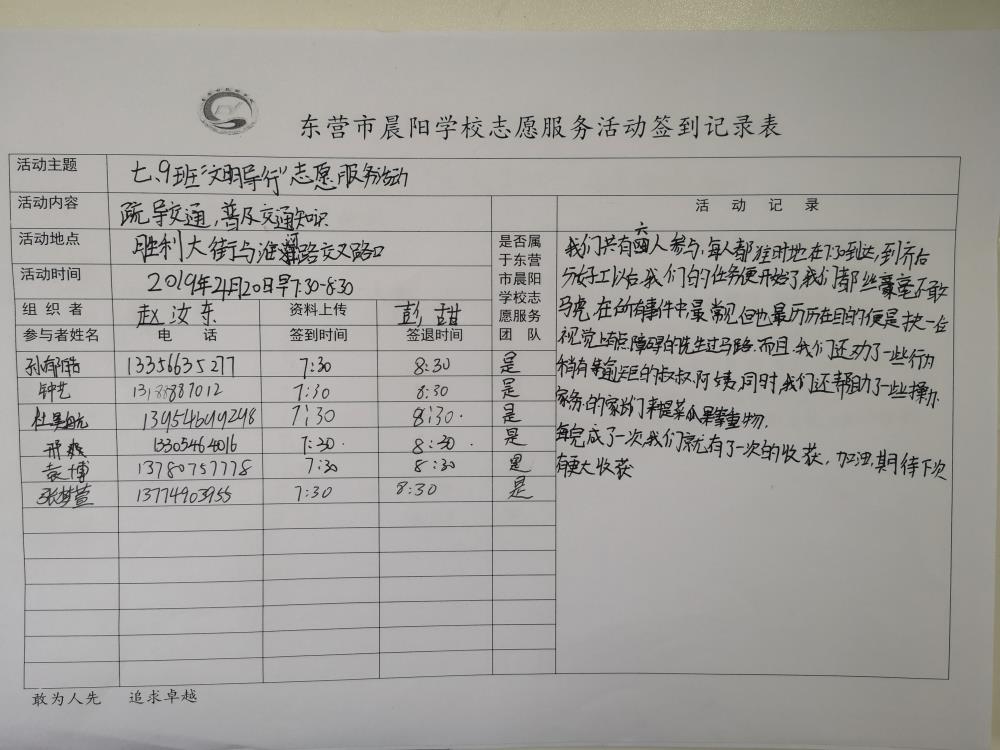 东营市晨阳学校志愿服务活动签到记录表
活动主题 七.9班“文明导行”志愿服务活动
活动内容 疏导交通,普及交通知识
活动地点 胜利大街与淮河路交叉路口
活动时间 2019年4月20日早7:30-8:30
组织者 赵汝东 资料上传 彭甜
参与者姓名 电话 签到时间 签退时间
是否属
于东营
市晨阳
学校志
愿服务
团队
13356635277 7:30 8:30 是
钟艺 13188887012 7:30 8:30 是
杜昊航 13954699298 7:30 8:30. 是
邢 13305464016 7:30. 8:30. 是
袁博 13780757778 7:30 8:30 是
张梦萱 13774903955 7:30 8:30 是
活动记录
我们共有六人参与,每人都准时地在7:30到达,到齐后
分好工以后,我们的任务便开始了,我们都些毫毫不敢
马虎,在所有事件中最常见但也最历历在目的便是扶一位
视觉上有点障碍的先生过马路.而且,我们还劝了一些行为
稍有逾矩的叔叔阿姨,同时,我们还帮助了一些操办
家务的家长们来提菜瓜果等重物.
每完成了一次,我们就有了一次的收获,加油,期待下次
有更大收获
敢为人先 追求卓越